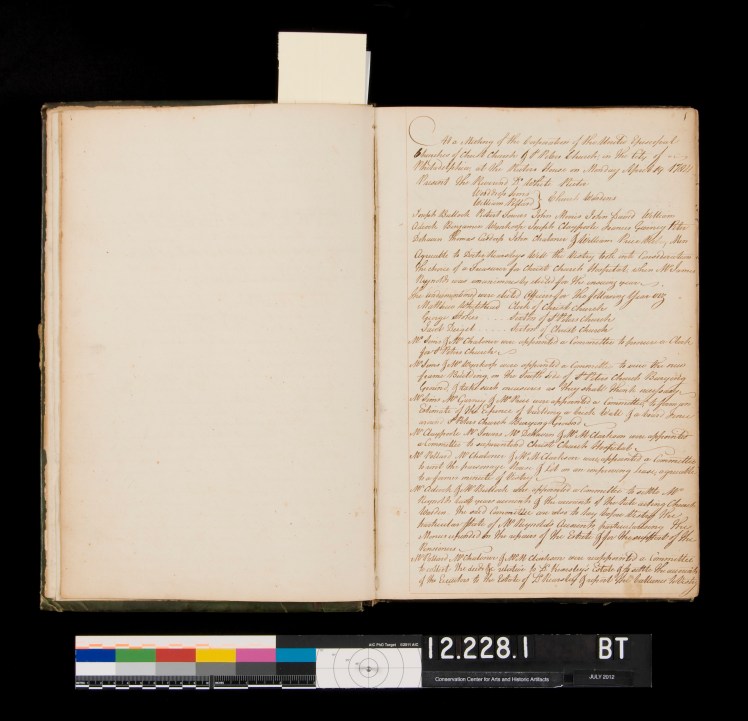 1
At a Meeting of the Corporation of the United Episcopal
Churches of Christ Church & St Peters Church in the City of
Philadelphia, at the Rectors House on Monday April 19 1784
Present The Reverend Dr White Rector
Woodrop Sims
William Pollard } Church Wardens
Joseph Bullock Robert Towers John Morris John William
Adcock Benjamin Wynkoop Joseph Claypoole Francis Gurney Peter
Dehaven Thomas John Chaloner & William Mr
Agreeable to Doctor Kearsleys Will the Vestry took into Consideration
the choice of a Treasurer for Christ Church Hospital, when Mr James
Reynolds was unanimously elected for the ensuing year
The undermentioned were elected Officers for the following Year viz
Matthew Whitehead Clerk of Christ Church
George Stokes Sexton of St Peters Church
Jacob Sexton of Christ Church
Mr Sims & Mr Chaloner are appointed a Committee to procure a Clerk
for St Peters Church
Mr Sims & Mr Wynkoop were appointed a Committee to view the new
frame Building on the South side of St Peters Church Burying
Ground, & take such measures as they shall think necessary
Mr Sims Mr Gurney & Mr were appointed a Committee to
Estimate of the Expence of building a brick Wall & a board Fence
around St Peters Church Burying Ground
Mr Claypoole Mr Towers Mr DeHaven & Mr M Clarkson were appointed
a Committee to superintend Christ Church Hospital
Mr Pollard Mr Chaloner & Mr M Clarkson were appointed a Committee
to the parsonage House & Lot on an improving lease, agreeable
to a former minute of Vestry
Mr Adcock & Mr Bullock are appointed a Committee to settle Mr
Reynolds last years accounts & the accounts of the late acting Church
Warden. The said Committee are also to lay before Vestry the
particular State of Mr Reynolds Accounts particularizing the
Monies expended in the repairs of the Estate & for the support of the
Pensioners
Mr Pollard Mr Chaloner & Mr M Clarkson were reappointed a Committee
to collect the deeds & relative to Dr Kearsleys Estate & to settle the accounts
of the Executors to the Estate of Dr Kearsley & report the to Vestry
AIC PhD Target ©2011 AIC
12.228.1 BT
Conservation Center for Arts and Historic Artifacts
JULY 2012